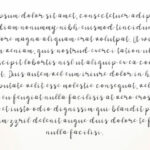 ipsum dolor sit amet, consectetuer adip
diam nonummy nibh euismod tincidun
ore magna aliquam erat volutpat. Ut wi
veniam, quis nostrud exerci tation ul
scipit lobortis nisl ut aliquip ex ea co
t. Duis autem vel eum iriure dolor in h
vulputate velit esse molestie consequat, vel
eu feugiat nulla facilisis at vero eros
et iusto odio dignissim qui blandit p
um zzril delenit augue duis dolore te f
nulla facilisi.